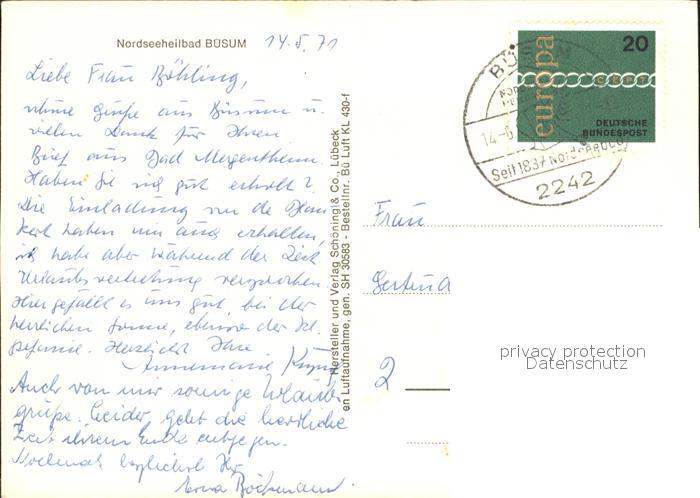 Nordseeheilbad BÜSUM 14.5.71
Liebe Frau Böhling,
Grüße aus Büsum u.
vielen Dank für Ihren
Brief aus Bad Mergentheim.
Haben Sie gut erholt?
Die Einladung
haben wir auch erhalten,
ich habe aber während der Zeit
Urlaubsvertretung versprochen.
Hier gefällt es uns gut, bei der
herrlichen Sonne, ebenso der
Herzlichst Ihre
Annemarie
Auch von mir sonnige Urlaubs-
grüße. Leider geht die herrliche
Zeit ihrem Ende entgegen.
Nochmals herzlichst Ihre
Erna Böckmann.
Hersteller und Verlag Schöning & Co., Lübeck
en Luftaufnahme, gen. SH 30583 - Bestellnr. Bü Luft KL 430-f
europa
20
CEPT
DEUTSCHE
BUNDESPOST
BÜSUM
14.-5
Seit 1837 Nordseebad
2242
Frau
Gertrud
2
privacy protection
Datenschutz